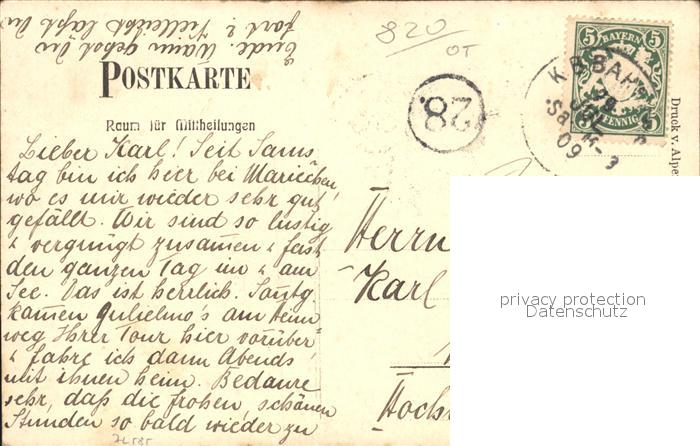 820
OT
POSTKARTE
Raum für Mittheilungen
28.
BAYERN
5 5
PFENNIG
K.B.BAH
JUL
09
Druck v. Alpe
Lieber Karl! Seit Sams
tag bin ich hier bei Mariechen,
wo es mir wieder sehr gut
gefällt. Wir sind so lustig
& vergnügt zusamen & fast
den ganzen Tag im & am
See. Das ist herrlich. Sontg
kamen Gulielmo's am Heim
weg Ihrer Tour hier vorüber
& fahre ich dann Abends
mit ihnen heim. Bedaure
sehr, daß die frohen, schönen
Stunden so bald wieder zu
Ende. Wann gehst Du
fort? Vielleicht laßt Du
Herrn
Karl
Hochs
privacy protection
Datenschutz